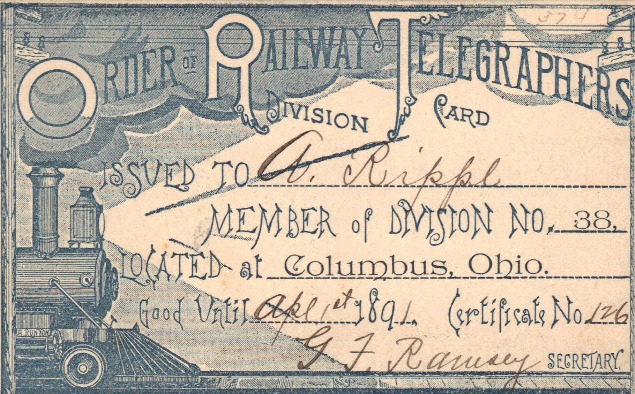 374
ORDER OF RAILWAY TELEGRAPHERS
DIVISION CARD
ISSUED TO A. Rippl
MEMBER of DIVISION NO. 38.
LOCATED at Columbus, Ohio.
Good Until Apl 1st 1891. Certificate No 126
G F. Ramsey SECRETARY.